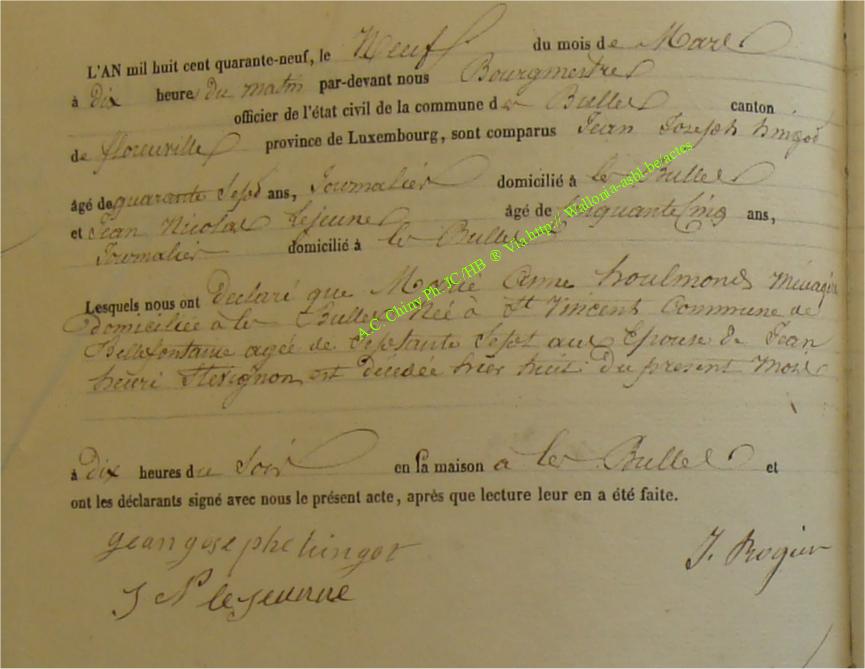 L'AN mil huit cent quarante-neuf, le Neuf du mois de Mars
à dix heures du matin par-devant nous Bourgmestre
officier de l'état civil de la commune de Bulles canton
de florenville province de Luxembourg, sont comparus Jean Joseph hingot
âgé de quarante Sept ans, Journalier domicilié à les Bulles
et Jean Nicolas Lejeune âgé de Cinquante Cinq ans,
Journalier domicilié à les Bulles
Lesquels nous ont déclaré que Marie Anne houlmonds Ménagère
domiciliée à les Bulles Née à St Vincent Commune de
Bellefontaine agée de Septante Sept ans Epouse de Jean
henri est décédée hier huit du present Mois
à dix heures du Soir en la maison à les Bulles et
ont les déclarants signé avec nous le présent acte, après que lecture leur en a été faite.
geangosephe hingot J. Rogier
J N le Jeunne
A.C. Chiny Ph. JC/HB ® Via http://Wallonia-asbl.be/actes